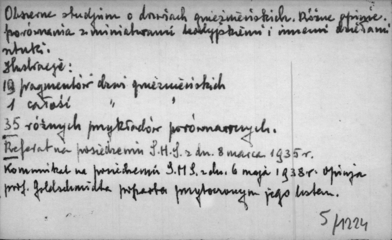 Obszerne studjum o drzwiach gnieźnieńskich. Różne opinje.
porównania z miniaturami i innemi dziełami
sztuki.
Ilustracje:
19 fragmentów drzwi gnieźnieńskich
1 całość " "
35 różnych przykładów porównawczych.
Referat na posiedzeniu S.H.S. z dn. 8 marca 1935 r.
Komunikat na posiedzeniu S.H.S. z dn. 6 maja 1938 r. Opinja
prof. Goldschmidta poparta przytoczonym jego listem.
5/1224